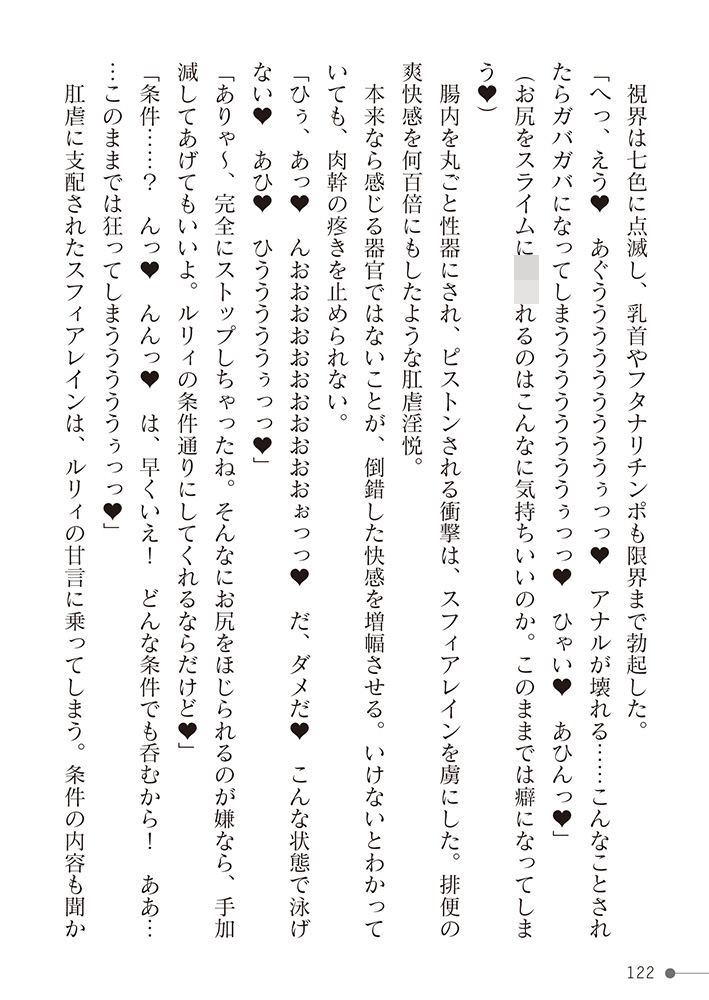 視界は七色に点滅し、乳首やフタナリチンポも限界まで勃起した。
「へっ、えう♥　あぐうううううううううぅっっ♥　アナルが壊れる……こんなことされ
たらガバガバになってしまうううううううううぅっっ♥　ひゃい♥　あひんっ♥」
（お尻をスライムに　　れるのはこんなに気持ちいいのか。このままでは癖になってしま
う♥）
腸内を丸ごと性器にされ、ピストンされる衝撃は、スフィアレインを虜にした。排便の
爽快感を何百倍にもしたような肛虐淫悦。
本来なら感じる器官ではないことが、倒錯した快感を増幅させる。いけないとわかって
いても、肉幹の疼きを止められない。
「ひぅ、あっ♥　んおおおおおおおおおおおおぉっっ♥　だ、ダメだ♥　こんな状態で泳げ
ない♥　あひ♥　ひうううううぅっっ♥」
「ありゃ～、完全にストップしちゃったね。そんなにお尻をほじられるのが嫌なら、手加
減してあげてもいいよ。ルリィの条件通りにしてくれるならだけど♥」
「条件……？　んっ♥　んんっ♥　は、早くいえ！　どんな条件でも呑むから！　ああ…
…このままでは狂ってしまうううううぅっっ♥」
肛虐に支配されたスフィアレインは、ルリィの甘言に乗ってしまう。条件の内容も聞か
122